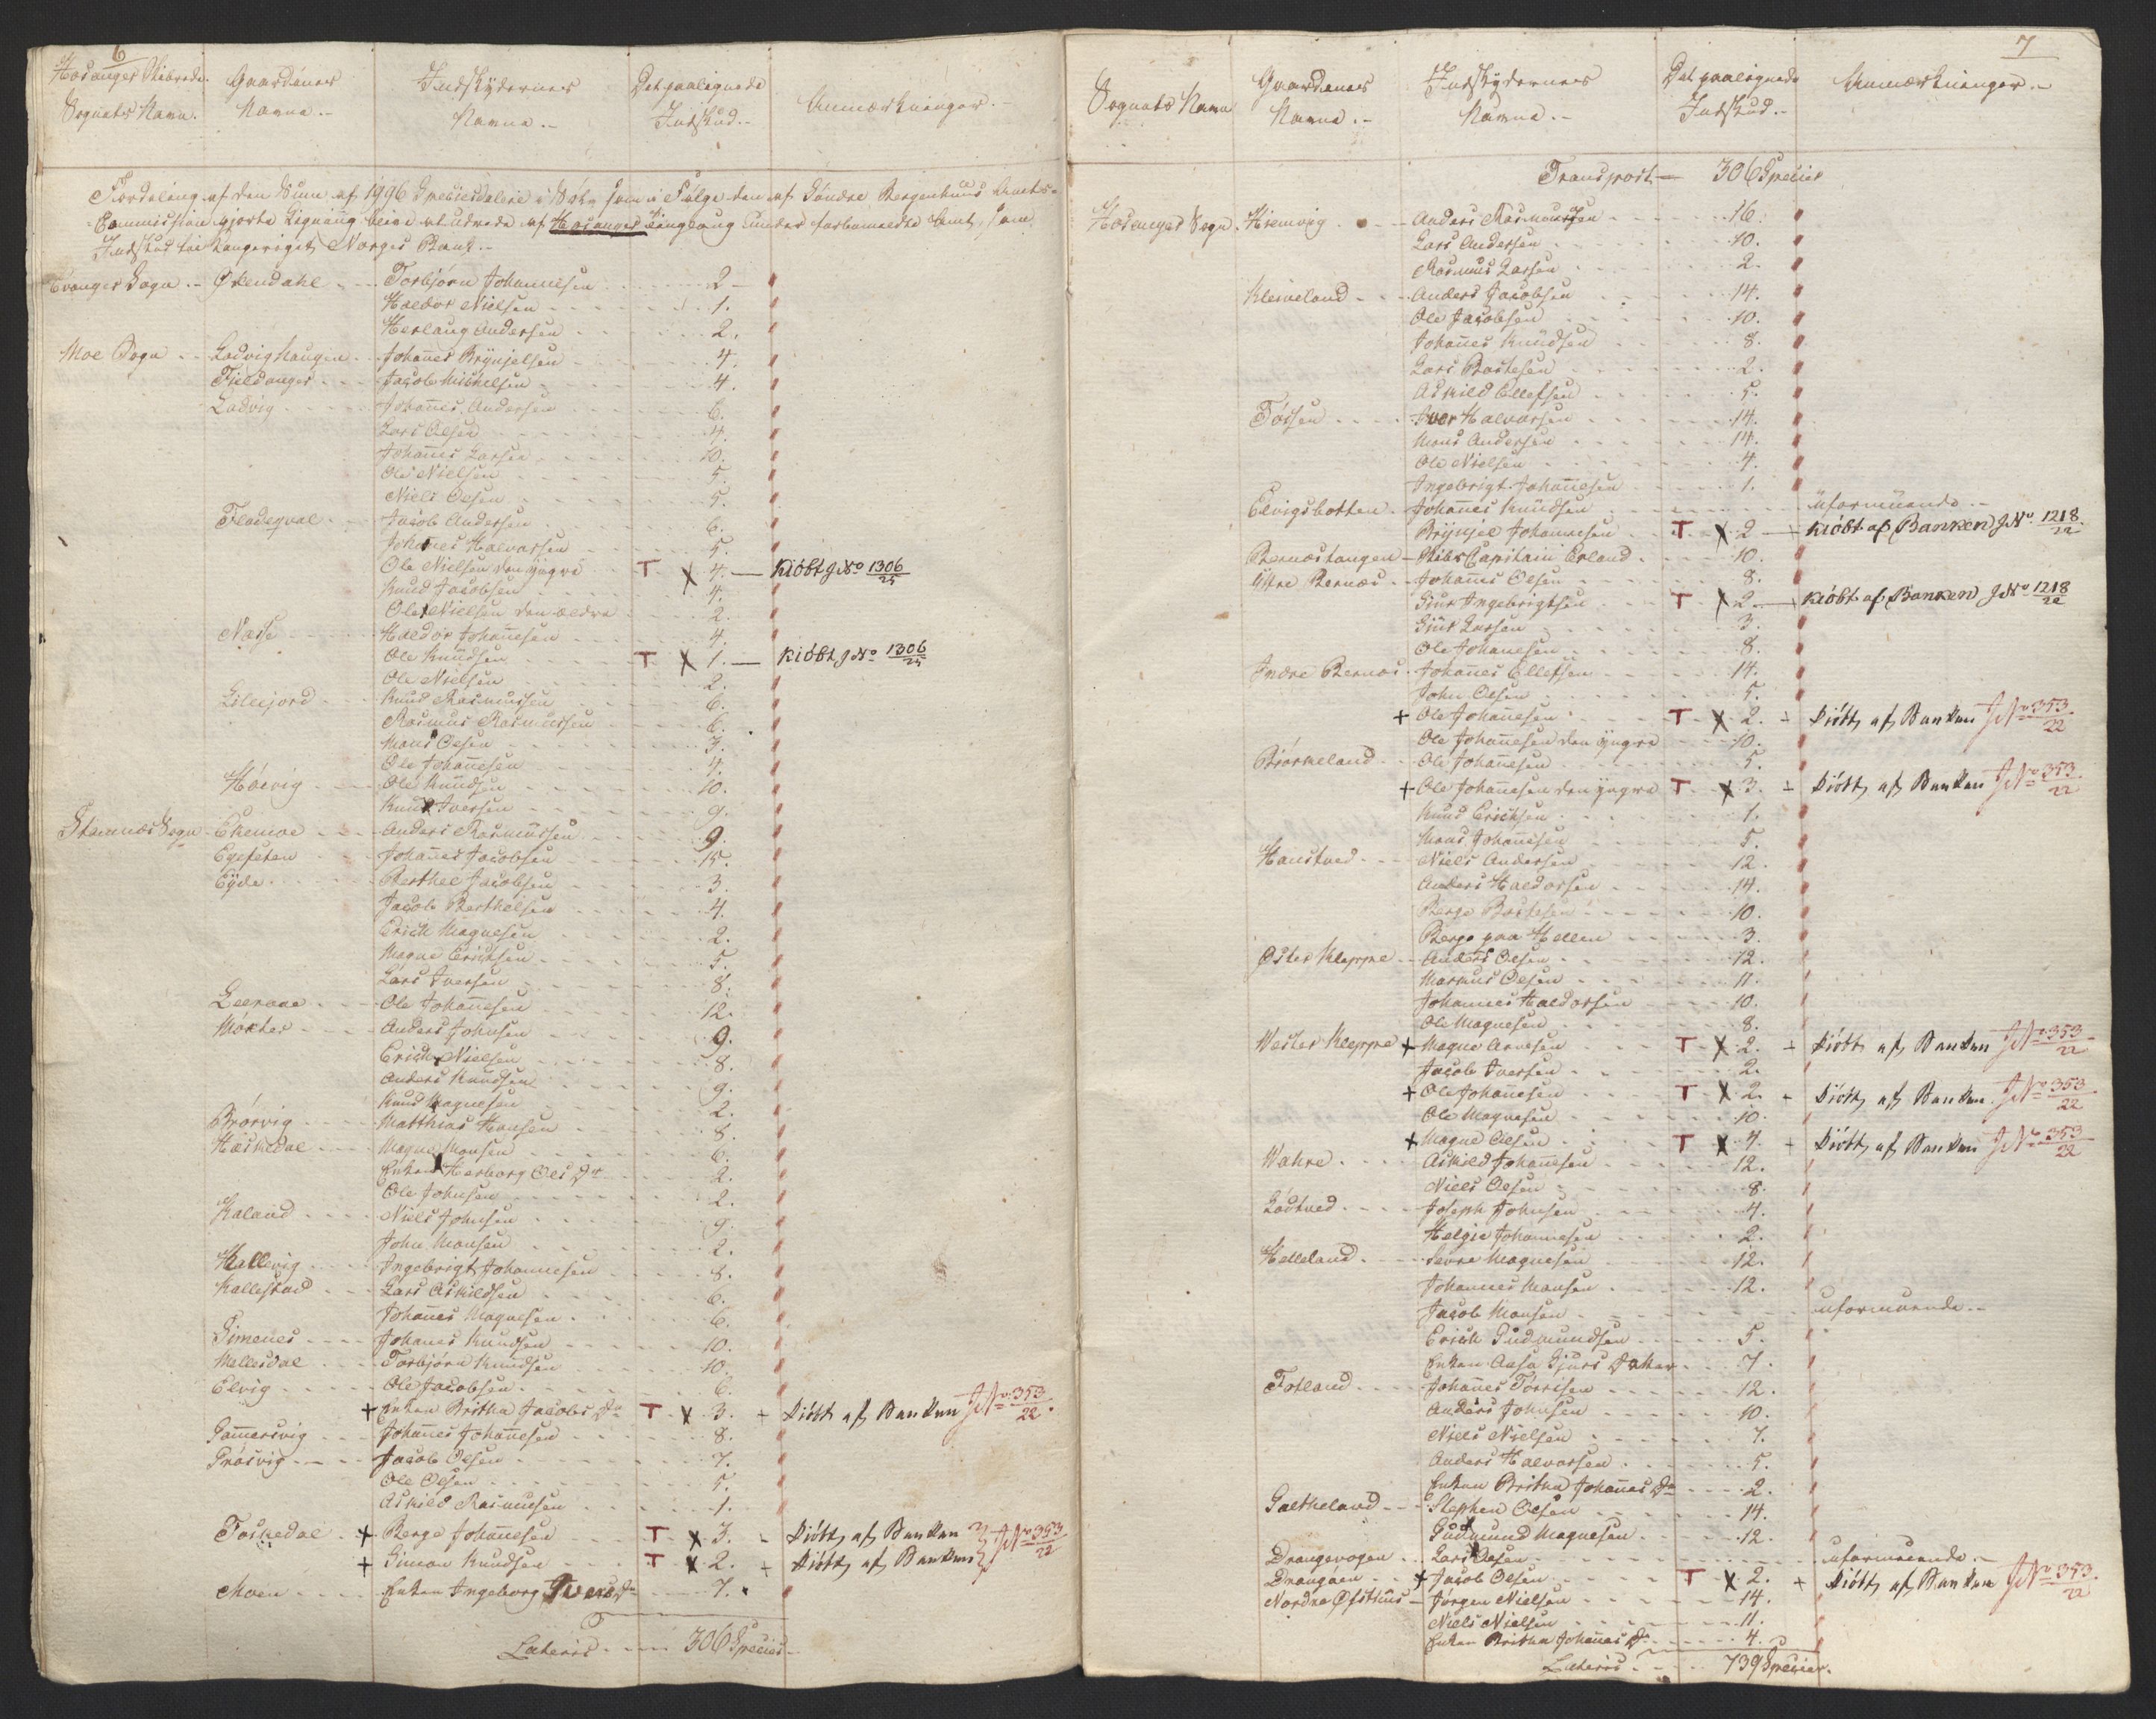 6
Hosanger Skibrede.
Sognets Navn. Gaardenes Navne.- Indskydernes Navne.- Det paalignede Indskud.- Anmærkninger.-
Fordeling af den Sum af 1996 Speciesdaler i Sølv som i Følge den af Søndre Bergenhuus Amts-
Commission gjorte Ligning bliver at udrede af Hosanger Tinglaug under forbemeldte Amt, som
Indskud til Kongeriget Norges Bank.-
Evanger Sogn.- Øxendahl - Torbjørn Johannesen - 2 -
Haldor Nielsen - 1.
Herlaug Andersen - 2.
Moe Sogn - Ladvighaugen - Johanes Brynjelsen - 4.
Fjeldanger - Jacob Mickelsen - 4.
Ladvig - Johanes Andersen - 6.
Lars Olsen - 4.
Johanes Larsen - 10.
Ole Nielsen - 5.
Niels Olsen - 5.
Fladeqval - Jacob Andersen - 6.
Johanes Halvorsen - 5.
Ole Nielsen den yngre - T X 4. — Kiöbt J No 1306/25
Knud Jacobsen - 4.
Ole Nielsen den ældre - 2.
Næsse - Haldor Johanesen - 4.
Ole Knudsen - T X 1. — Kiöbt J No 1306/25
Ole Nielsen - 2.
Lilejord - Knud Rasmussen - 6.
Rasmus Rasmussen - 6.
Mons Olsen - 3.
Ole Johanesen - 4.
Høevig - Ole Knudsen - 10.
Knud Iversen - 9.
Stamnæs Sogn - Ekemoe - Anders Rasmussen - 9.
Egesæten - Johanes Jacobsen - 15.
Eyde - Berthel Jacobsen - 3.
Jacob Berthelsen - 4.
Erich Magnesen - 2.
Magne Erichsen - 5.
Lars Iversen - 8.
Leeraae - Ole Johanesen - 12.
Møxter - Anders Johnsen - 9.
Erich Nielsen - 8.
Anders Knudsen - 9.
Knud Magnesen - 2.
Brørvig - Matthias Hansen - 8.
Hæskedal - Magne Monsen - 6.
Enken Herborg Ols Dr - 2.
Ole Johnsen - 2.
Kaland - Niels Johnsen - 9.
John Monsen - 2.
Hallevig - Ingebrigt Johannesen - 8.
Kallestad - Lars Askildsen - 6.
Johanes Magnesen - 6.
Simenes - Johanes Knudsen - 10.
Mellesdal - Torbjørn Knudsen - 10.
Elvig - Ole Jacobsen - 6.
+ Enken Britha Jacobs Dr - T X 3. + kiöbt af Banken J No 353/22
Gamersvig - Johanes Johanesen - 8.
Prøsvig - Jacob Olsen - 7.
Ole Olsen - 5.
Askild Rasmusen - 1.
Foskedal - + Berge Johanesen - T X 3. - kiöbt af Banken } J No 353/22
+ Simon Knudsen - T X 2. + kiöbt af Banken
Moen - Enken Ingeborg Ivers Dr - 7.
Lateris - 306 Species
7
Sognets Navn Gaardenes Navne.- Indskydernes Navne.- Det paalignede Indskud.- Anmærkninger.-
Transport — 306 Species
Hosanger Sogn. Hiemvig - Anders Rasmussen - 16.
Lars Andersen - 10.
Rasmus Larsen - 2.
Kleiveland - Anders Jacobsen - 14.
Ole Jacobsen - 10.
Johanes Knudsen - 8.
Lars Bortesen - 2.
Askild Ellefsen - 5.
Tössen - Iver Halvorsen - 14.
Mons Andersen - 14.
Ole Nielsen - 4.
Ingebrigt Johanesen - 1.
Elvigsbotten - Johanes Knudsen - uformuende.-
Brynjel Johannesen - T X 2 — kiöbt af Banken J No 1218/22
Bernæstangen - Skibs Capitain Erland - 10.
Yttre Bernæs - Johanes Olsen - 8.
Siur Ingebrigtsen - T X 2 — kiöbt af Banken J No 1218/22
Siur Larsen - 3.
Ole Johanesen - 8.
Indre Bernæs - Johanes Ellefsen - 14.
John Olsen - 5.
+ Ole Johanesen - T X 2. + kiöbt af Banken J No 353/22
Ole Johanesen den yngre - 10.
Biørkeland - Ole Johanesen - 5.
+ Ole Johanesen den yngre T X 3. + kiöbt af Banken J No 353/22
Knud Erichsen - 1.
Mons Johanesen - 5.
Haustved - Niels Andersen - 12.
Anders Haldorsen - 14.
Berge Bortesen - 10.
Berge paa Hellen - 3.
Øster Kleppe - Anders Olsen - 12.
Markus Olsen - 11.
Johannes Haldorsen - 10.
Ole Magnesen - 8.
Wester Kleppe + Magne Arnesen - T X 2. + kiöbt af Banken J No 353/22
Jacob Iversen - 2.
+ Ole Johanesen - T X 2. + kiöbt af Banken J No 353/22
Ole Magnesen - 10.
+ Magne Olsen - T X 4. + kiöbt af Banken J No 353/22
Wahre - Askild Johanesen - 12.
Niels Olsen - 8.
Lødtved - Joseph Johnsen - 4.
Helgie Johannesen - 2.
Helleland - Sevre Magnesen - 12.
Johannes Monsen - 12.
Jacob Monsen - uformuende.-
Erich Gudmundsen - 5.
Enken Aasa Sjurs Datter - 7.
Fotland - Johanes Torrisen - 12.
Anders Johnsen - 10.
Niels Nielsen - 7.
Anders Halvorsen - 5.
Enken Britha Johanes Dr - 2.
Galtheland - Stephen Olsen - 14.
Gudmund Magnesen - 12.
Drangevogen - Lars Olsen - uformuende.-
Drangöen - + Jacob Olsen - T X 2. + kiöbt af Banken J No 353/22
Nordre Øfsthus - Jörgen Nielsen - 14.
Niels Nielsen - 11.
Enken Britha Johanes Dr - 4.
Lateris - 739 Species.